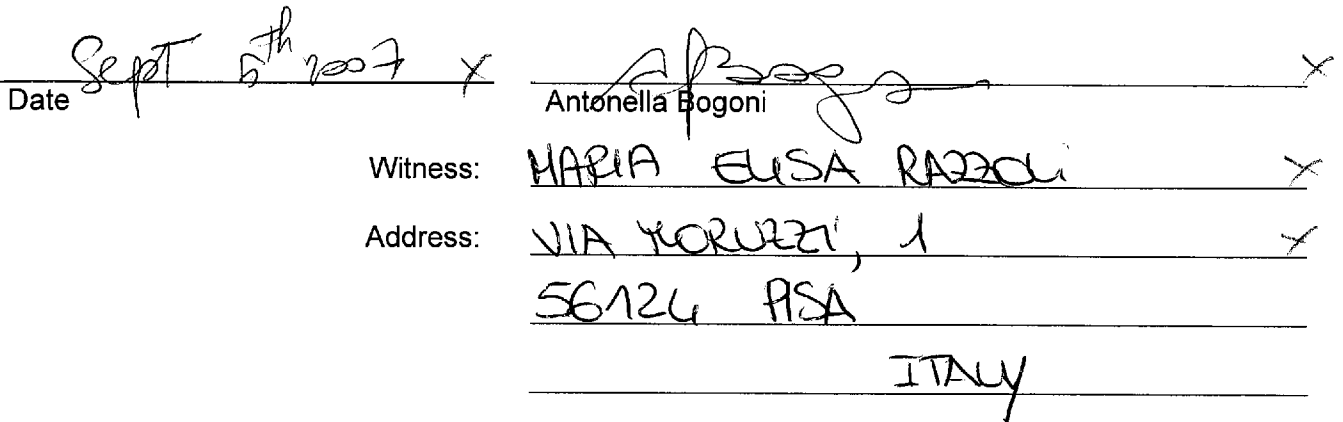 Sept 5th 2007 X X
Date Antonella Bogoni
Witness: MARIA ELISA RAZZOLI X
Address: VIA MORUZZI, 1 X
56124 PISA
ITALY